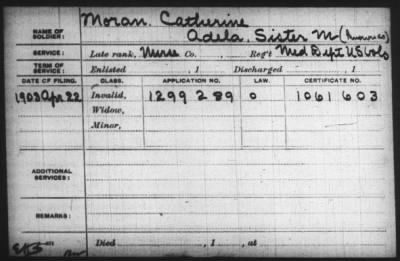 Moran. Catherine
NAME OF SOLDIER: Adela, Sister M
SERVICE: Late rank, Nurse Co. , Reg't Med Dept US Vols
TERM OF SERVICE: Enlisted , 1 Discharged , 1
DATE OF FILING. CLASS. APPLICATION NO. LAW. CERTIFICATE NO.
1903 Apr 22 Invalid, 1299 289 0 1061 603
Widow,
Minor,
ADDITIONAL SERVICES:
REMARKS:
Died , 1 , at